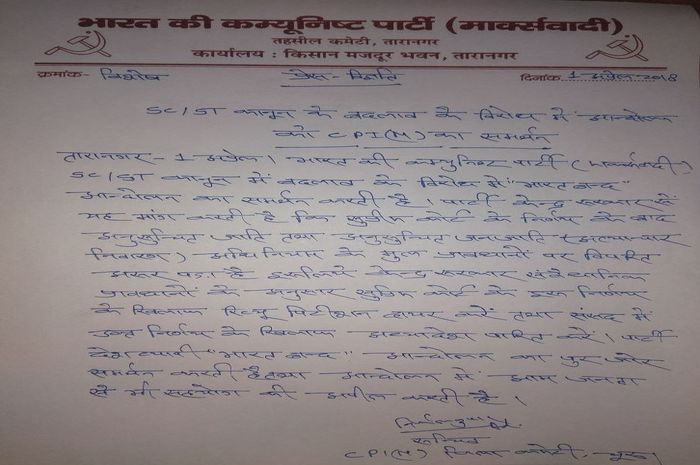 भारत की कम्यूनिष्ट पार्टी (मार्क्सवादी)
तहसील कमेटी, तारानगर
कार्यालय : किसान मजदूर भवन, तारानगर
क्रमांक- विशेष प्रेस - विज्ञप्ति दिनांक 1 अप्रेल 2018
SC/ST कानून के बदलाव के विरोध में आन्दोलन
को CPI(M) का समर्थन
तारानगर - 1 अप्रेल। भारत की कम्युनिस्ट पार्टी (मार्क्सवादी)
SC/ST कानून में बदलाव के विरोध में "भारत बन्द"
आन्दोलन का समर्थन करती है। पार्टी केन्द्र सरकार से
यह मांग करती है कि सुप्रीम कोर्ट के निर्णय के बाद
अनुसूचित जाति तथा अनुसूचित जनजाति (अत्याचार
निवारण) अधिनियम के मुल प्रावधानों पर विपरित
असर पड़ा है इसलिये केन्द्र सरकार संवैधानिक
प्रावधानों के अनुसार सुप्रिम कोर्ट के इस निर्णय
के खिलाफ रिव्यू पिटीशन दायर करें तथा संसद में
उक्त निर्णय के खिलाफ अध्यादेश पारित करें। पार्टी
देशव्यापी "भारत बन्द" आन्दोलन का पुर जोर
समर्थन करती है तथा आन्दोलन में आम जनता
से भी सहयोग की अपील करती है।
सचिव
CPI(M) जिला कमेटी, चूरू।